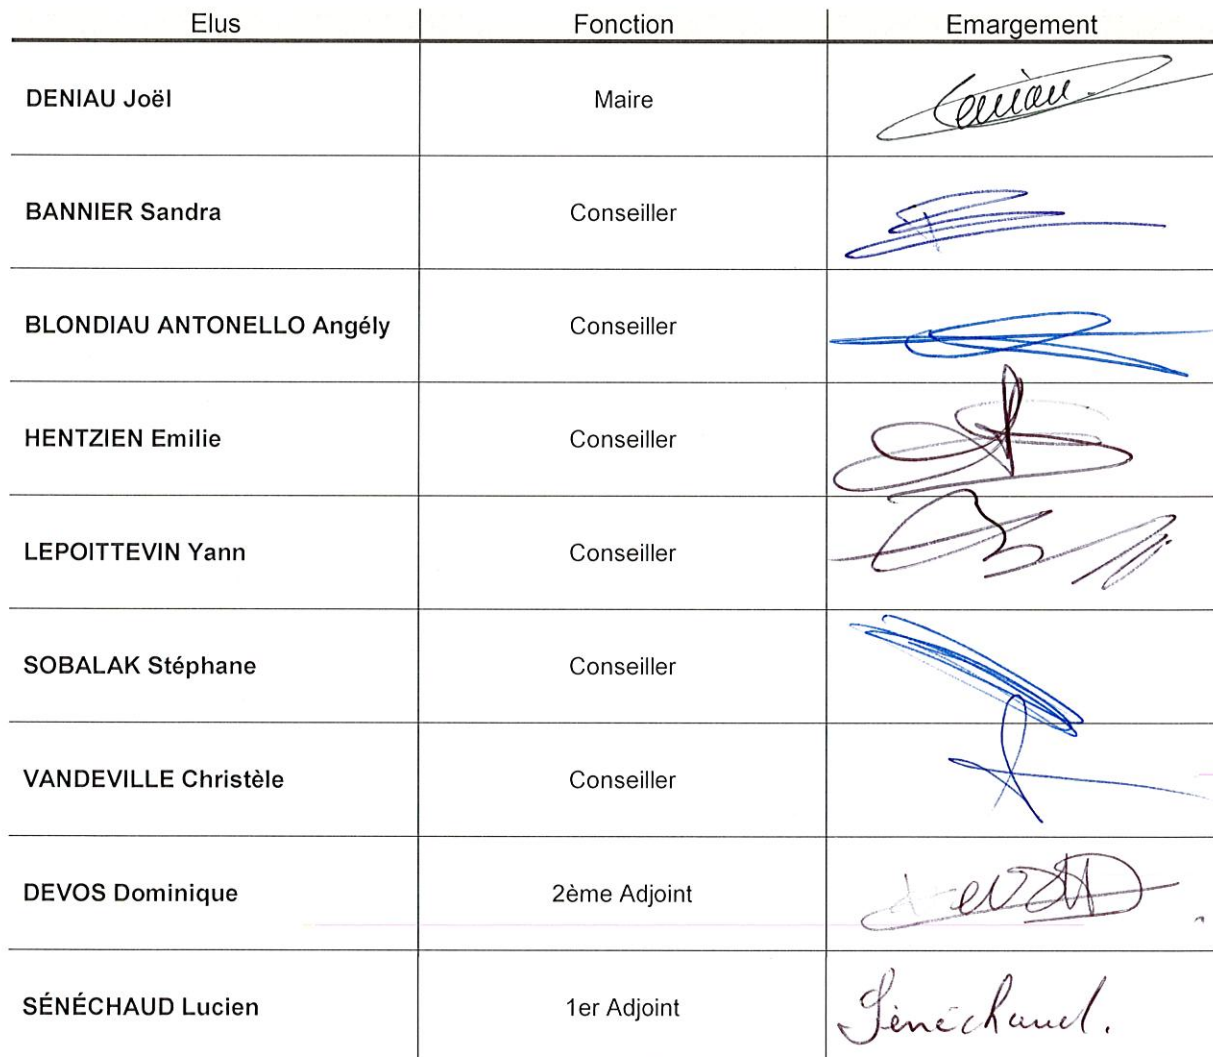 Elus Fonction Emargement
DENIAU Joël Maire Deniau
BANNIER Sandra Conseiller
BLONDIAU ANTONELLO Angély Conseiller
HENTZIEN Emilie Conseiller
LEPOITTEVIN Yann Conseiller
SOBALAK Stéphane Conseiller
VANDEVILLE Christèle Conseiller
DEVOS Dominique 2ème Adjoint Devos
SÉNÉCHAUD Lucien 1er Adjoint Sénéchaud.